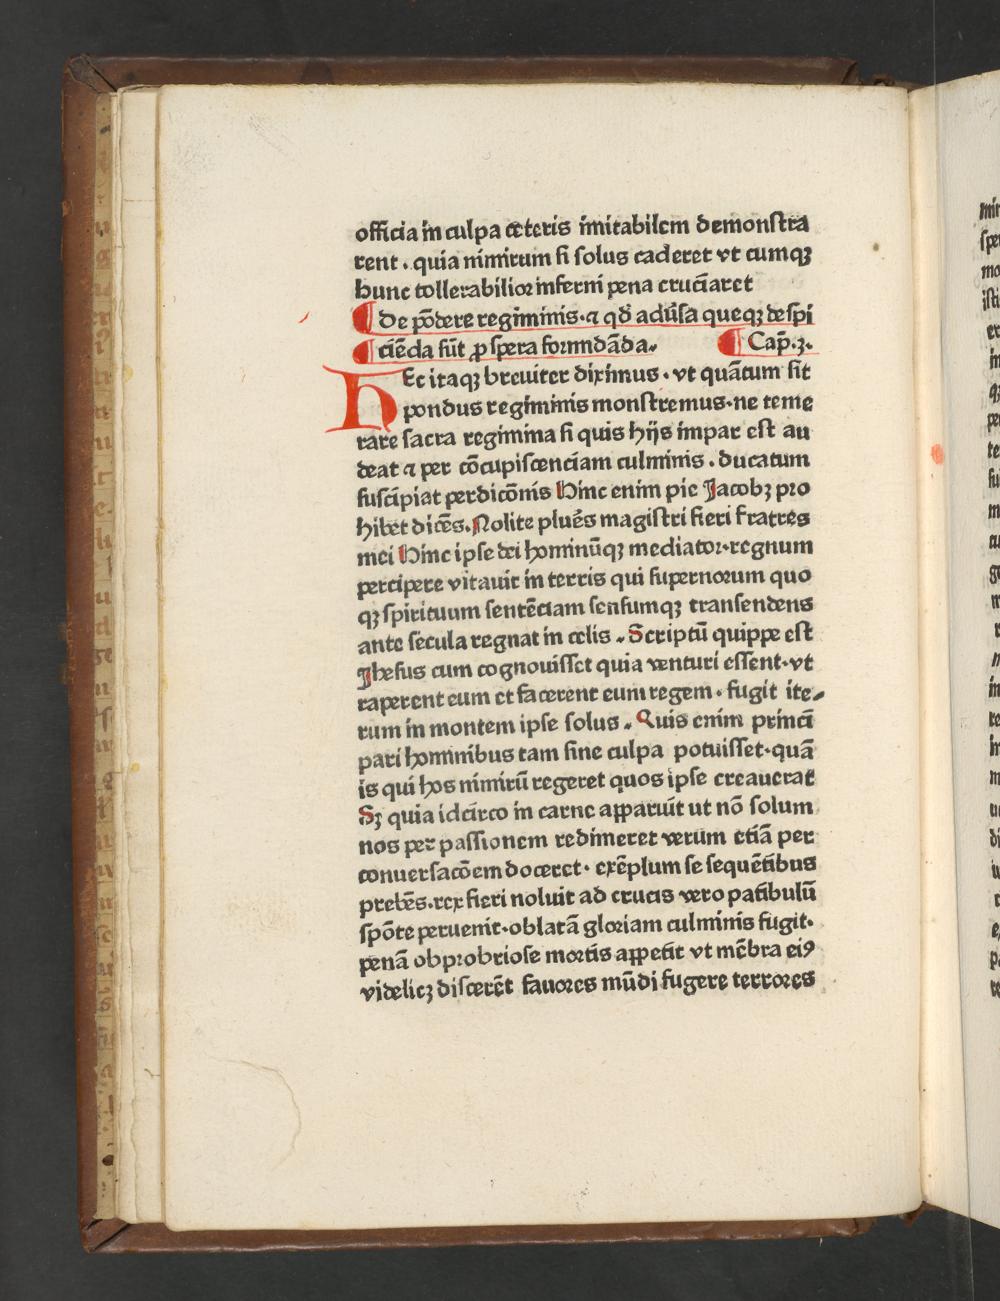 officia in culpa ceteris imitabilem demonstra
rent . quia nimirum si solus caderet vt cumqꝫ
hunc tollerabilior inferni pena cruciaret
¶ De põdere regiminis · ⁊ qđ adũsa queqꝫ despi
¶ ciẽda sũt ꝓspera formidãda. ¶ Cap̃.3.
HEc itaqꝫ breuiter diximus . vt quãtum sit
pondus regiminis monstremus · ne teme
rare sacra regimina si quis hijs impar est au
deat ⁊ per cõcupiscenciam culminis . ducatum
suscipiat perdicõnis Hinc enim pie Jacobꝫ pro
hibet dicẽs. Nolite pluẽs magistri fieri fratres
mei Hinc ipse dei hominũqꝫ mediator·regnum
percipere vitauit in terris qui supernorum quo
qꝫ spirituum sentẽciam sensumqꝫ transendens
ante secula regnat in celis . Scriptũ quippe est
Jhesus cum cognouisset quia venturi essent·vt
raperent eum et facerent eum regem . fugit ite⸗
rum in montem ipse solus . Quis enim princi
pari hominibus tam sine culpa potuisset·quã
is qui hos nimirũ regeret quos ipse creauerat
Sꝫ quia idcirco in carne apparuit ut nõ solum
nos per passionem redimeret verum etiã per
conuersacõem doceret · exẽplum se sequẽtibus
prebẽs.rex fieri noluit ad crucis vero patibulũ
spõte peruenit·oblatã gloriam culminis fugit·
penã obprobriose mortis appetit vt mẽbra eiꝰ
videlicꝫ discerẽt fauores mũdi fugere terrores